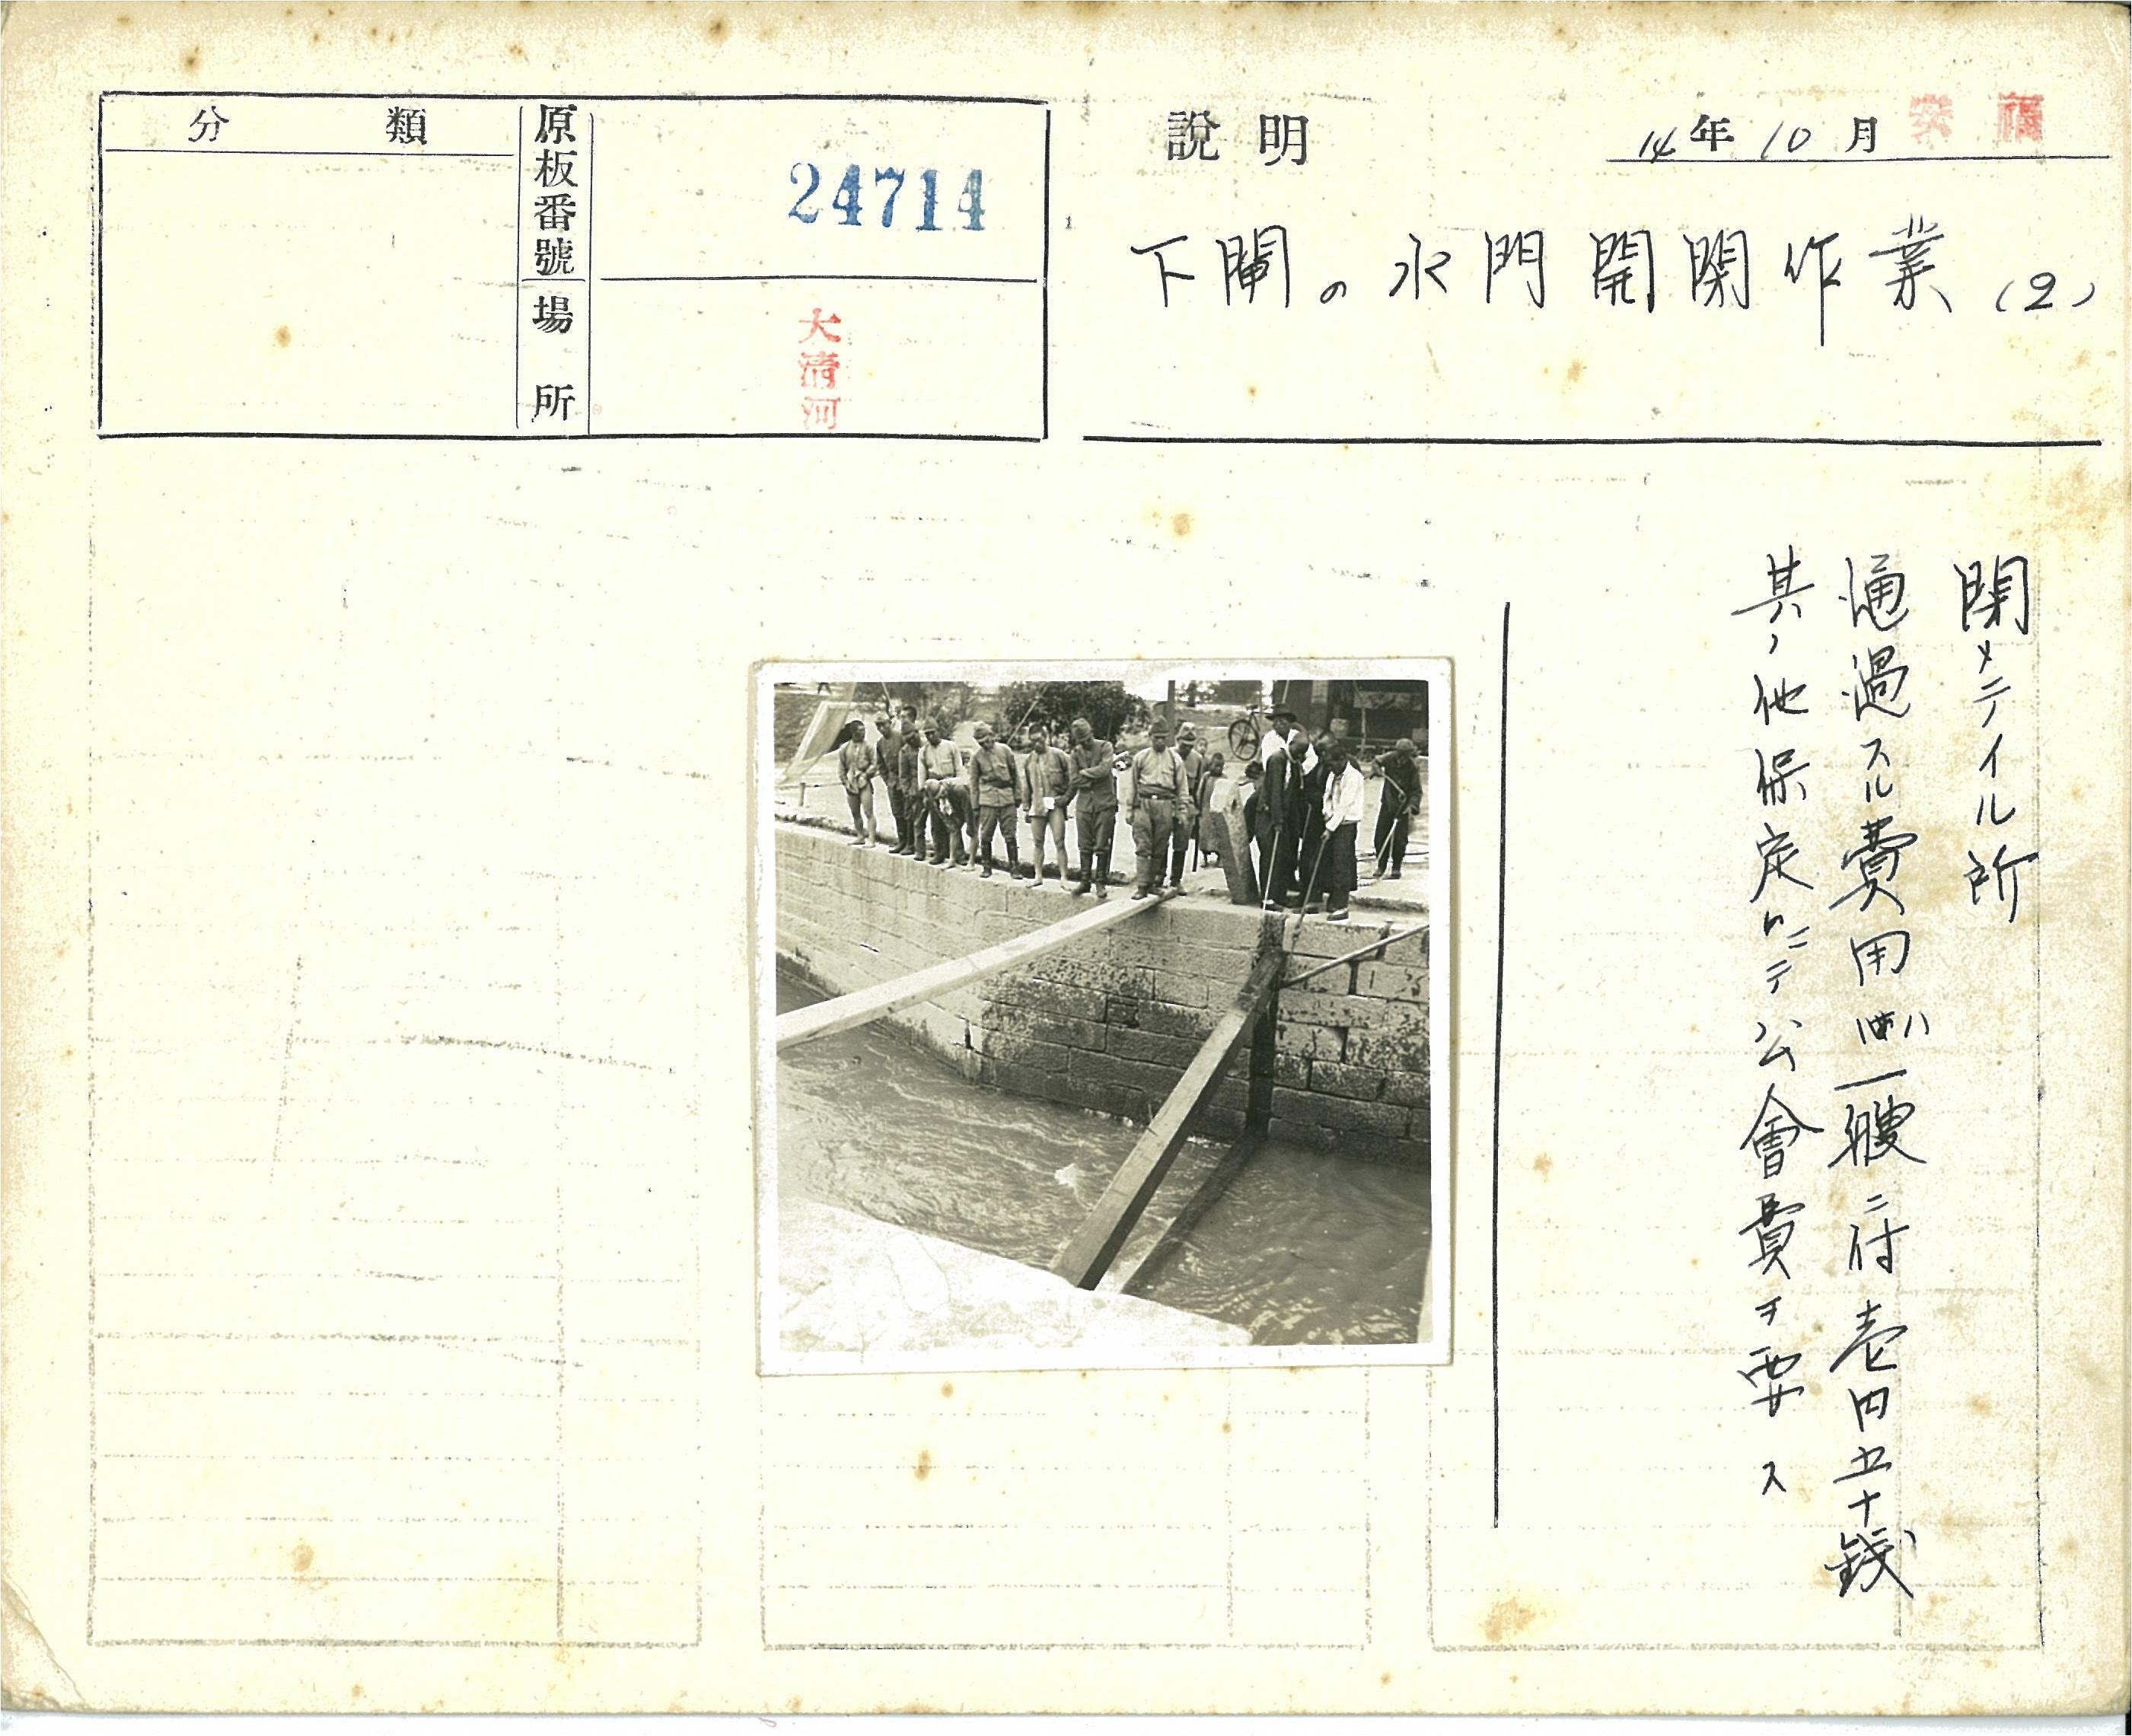 分類
原板番號
24714
場所
大清河
說明
14年10月
下閘の水門開閉作業(2)
閉メテイル所
通過スル費用ハ一艘ニ付壱円五十錢
其ノ他保定ニテ公會費ヲ要ス